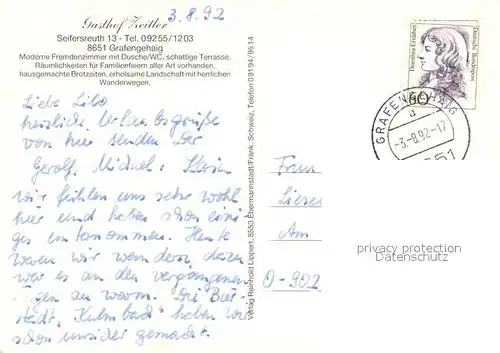 3.8.92
Gasthof Zeitler
Seifersreuth 13 - Tel. 09255/1203
8651 Grafengehaig
Moderne Fremdenzimmer mit Dusche/WC, schattige Terrasse.
Räumlichkeiten für Familienfeiern aller Art vorhanden,
hausgemachte Brotzeiten, erholsame Landschaft mit herrlichen
Wanderwegen.
Liebe Lilo
herzliche Urlaubsgrüße
von hier senden Dir
Gerolf, Michael,
Wir fühlen uns sehr wohl
hier und haben schon eini-
ges unternommen. Heute
waren wir wandern, dazu
war es an den vergangenen
-gen zu warm. Die Bier-
stadt "Kulmbach" haben wir
schon unsicher gemacht.
Verlag Reinhold Lippert, 8553 Ebermannstadt/Fränk. Schweiz, Telefon 09194/9514
Dorothea Erxleben
Deutsche Bundespost
60
GRAFENGEHAIG
a
-3.-8.92-17
8651
Frau
Am
O-902
privacy protection
Datenschutz